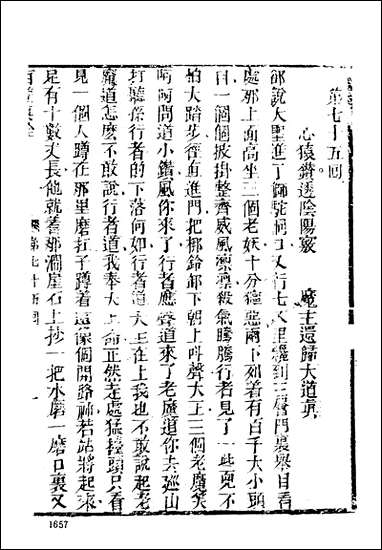 第七十五回
心猿鑽透陰陽竅 魔王還歸大道真
卻說大聖進了獅駝洞口又行七八里纔到三層門裏舉目看
處那上面高坐三個老妖十分獰惡兩下列着有百千大小頭
目一個個披掛整齊威風凜凜殺氣騰騰行者見了一些兒不
怕大踏步徑直進門把梆鈴卸下朝上叫聲大王三個老魔笑
呵呵問道小鑽風你來了行者應聲道來了老魔道你去巡山
打聽孫行者的下落何如行者道大王在上我也不敢說起老
魔道怎麼不敢說行者道我奉大王命正然走處猛擡頭只看
見一個人蹲在那里磨扛子蹲着還像個開路神若站將起來
足有十數丈長他就着那澗崖石上抄一把水磨一磨口裏又
第七十五回 一
1657